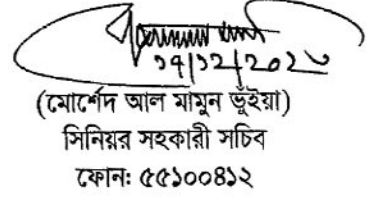 ১৭/১২/২০২৩
(মোর্শেদ আল মামুন ভূঁইয়া)
সিনিয়র সহকারী সচিব
ফোন: ৫৫১০০৪১২